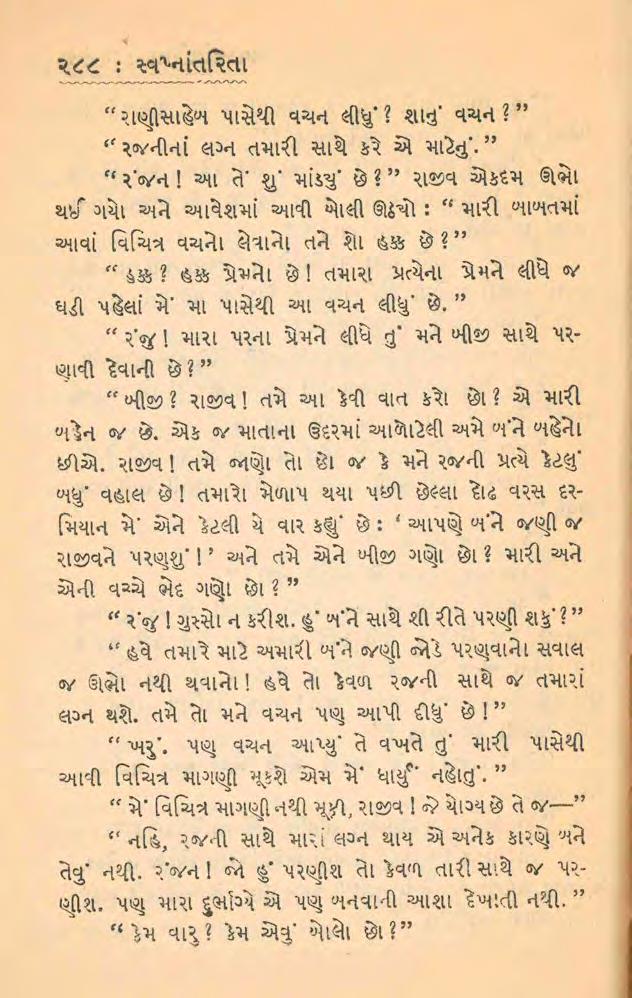 ૨૮૮ : સ્વપ્નાંતરિતા
“રાણીસાહેબ પાસેથી વચન લીધું? શાનું વચન?”
“રજનીનાં લગ્ન તમારી સાથે કરે એ માટેનું.”
“રંજન! આ તેં શું માંડ્યું છે?” રાજીવ એકદમ ઊભો
થઈ ગયો અને આવેશમાં આવી બોલી ઊઠ્યો : “મારી બાબતમાં
આવાં વિચિત્ર વચનો લેવાનો તને શો હક્ક છે?”
“હક્ક? હક્ક પ્રેમનો છે! તમારા પ્રત્યેના પ્રેમને લીધે જ
ઘડી પહેલાં મેં મા પાસેથી આ વચન લીધું છે.”
“રંજુ! મારા પરના પ્રેમને લીધે તું મને બીજી સાથે પર-
ણાવી દેવાની છે?”
“બીજી? રાજીવ! તમે આ કેવી વાત કરો છો? એ મારી
બહેન જ છે. એક જ માતાના ઉદરમાં આળોટેલી અમે બંને બહેનો
છીએ. રાજીવ! તમે જાણો તો છો જ કે મને રજની પ્રત્યે કેટલું
બધું વહાલ છે! તમારો મેળાપ થયા પછી છેલ્લા દોઢ વરસ દર-
મિયાન મેં એને કેટલી યે વાર કહ્યું છે : ‘આપણે બંને જણી જ
રાજીવને પરણશું!’ અને તમે એને બીજી ગણો છો? મારી અને
એની વચ્ચે ભેદ ગણો છો?”
“રંજુ! ગુસ્સો ન કરીશ. હું બંને સાથે શી રીતે પરણી શકું?”
“હવે તમારે માટે અમારી બંને જણી જોડે પરણવાનો સવાલ
જ ઊભો નથી થવાનો! હવે તો કેવળ રજની સાથે જ તમારાં
લગ્ન થશે. તમે તો મને વચન પણ આપી દીધું છે!”
“ખરું. પણ વચન આપ્યું તે વખતે તું મારી પાસેથી
આવી વિચિત્ર માગણી મૂકશે એમ મેં ધાર્યું નહોતું.”
“મેં વિચિત્ર માગણી નથી મૂકી, રાજીવ! જે યોગ્ય છે તે જ—”
“નહિ, રજની સાથે મારાં લગ્ન થાય એ અનેક કારણે બને
તેવું નથી. રંજન! જો હું પરણીશ તો કેવળ તારી સાથે જ પર-
ણીશ. પણ મારા દુર્ભાગ્યે એ પણ બનવાની આશા દેખાતી નથી.”
“કેમ વારુ? કેમ એવું બોલો છો?”